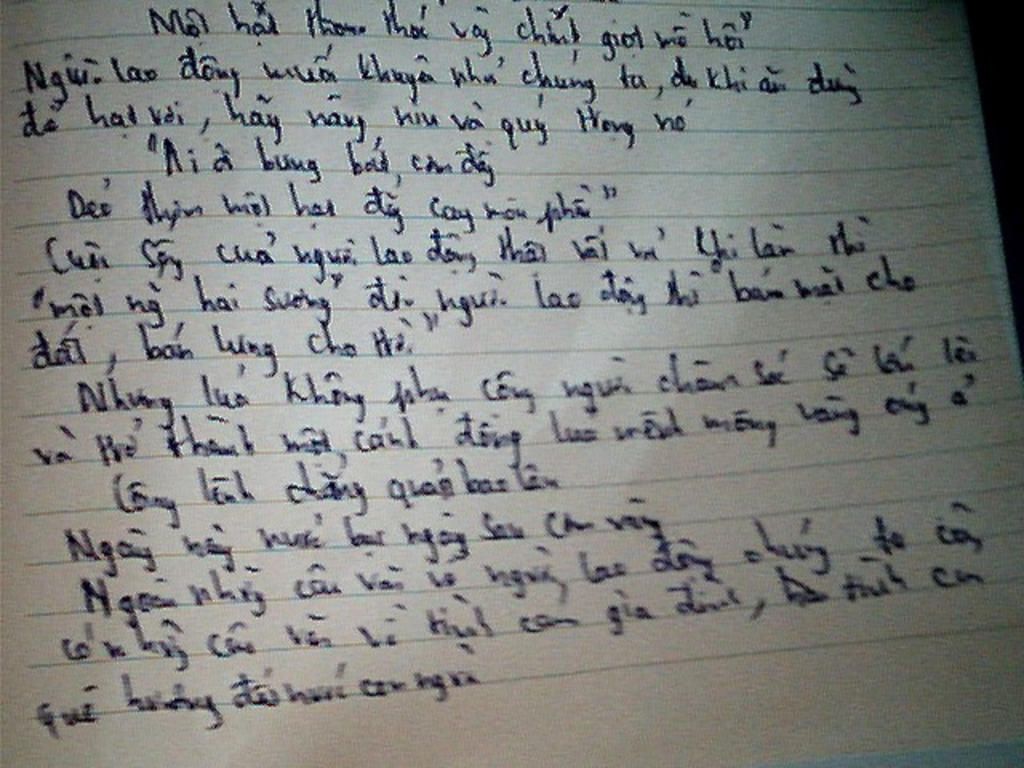 Một hạt thóc vàng chín giọt mồ hôi"
Người lao động muốn khuyên nhủ chúng ta, du khi ăn
hãy nâng niu và quý trọng nó
"Ai ơi bưng bát cơm đầy
Dẻo thơm một hạt đắng cay muôn phần"
Cuộc sống của người lao động thật vất vả khi làm thì
"một nắng hai sương" người lao động thì "bán mặt cho
đất, bán lưng cho trời"
Nhưng lúa không phụ công người chăm sóc
và trở thành một cánh đồng lúa mênh mông vàng óng ả
Công lênh chẳng quản bao lâu
Ngày nay nước bạc ngày sau cơm vàng
Ngoài những câu văn về người lao động chúng ta còn
có những câu văn về tình cảm gia đình, tình cảm
quê hương đất nước con người